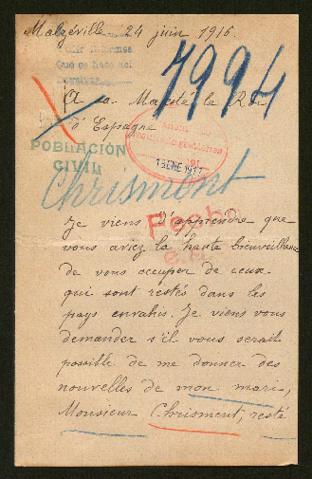 Malzéville 24 juin 1916.
7994
A sa Majesté le Roi
d'Espagne
POBLACIÓN
CIVIL
Chrismont
Je viens d'apprendre que
vous aviez la haute bienveillance
de vous occuper de ceux
qui sont restés dans les
pays envahis. Je viens vous
demander s'il vous serait
possible de me donner des
nouvelles de mon mari,
Monsieur Chrisment, resté